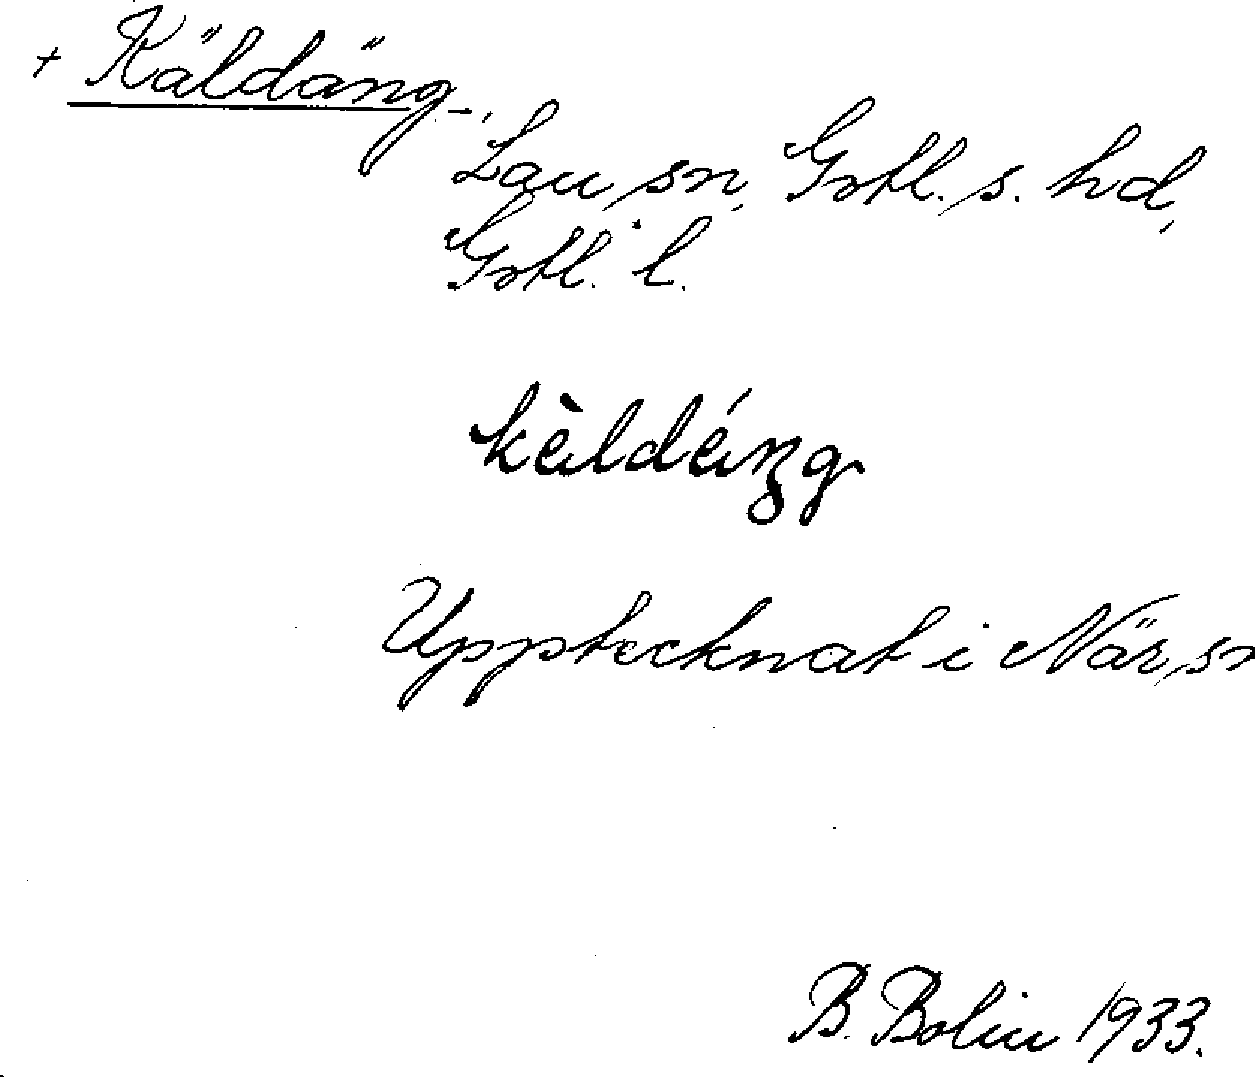 + Käldäng
Lau sn, Gotl. s. hd,
Gotl. l.
kèldéŋg
Upptecknat i När sn
B. Bolin 1933.